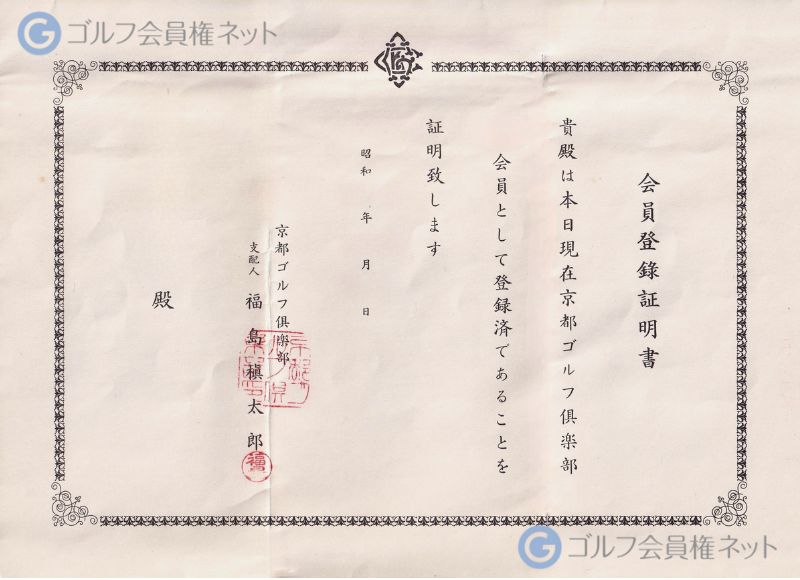 ゴルフ会員権ネット
会員登録証明書
貴殿は本日現在京都ゴルフ倶楽部
会員として登録済であることを
証明致します
昭和　年　月　日
京都ゴルフ倶楽部
支配人　福島槇太郎
殿
ゴルフ会員権ネット